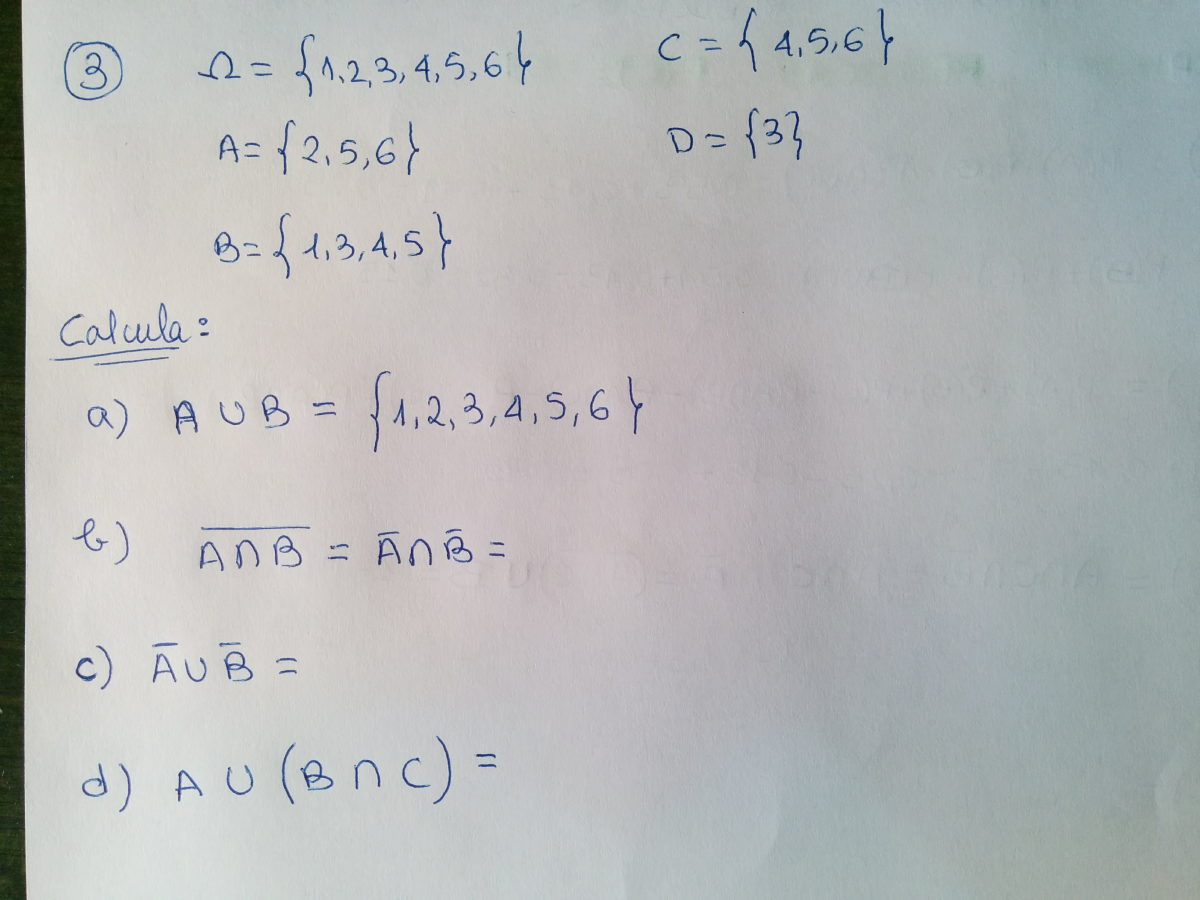 3 Ω = {1,2,3,4,5,6} C = {4,5,6}
A = {2,5,6} D = {3}
B = {1,3,4,5}
Calcula:
a) A ∪ B = {1,2,3,4,5,6}
b) \overline{A∩B} = Ā∩B̄ =
c) Ā∪B̄ =
d) A ∪ (B ∩ C) =